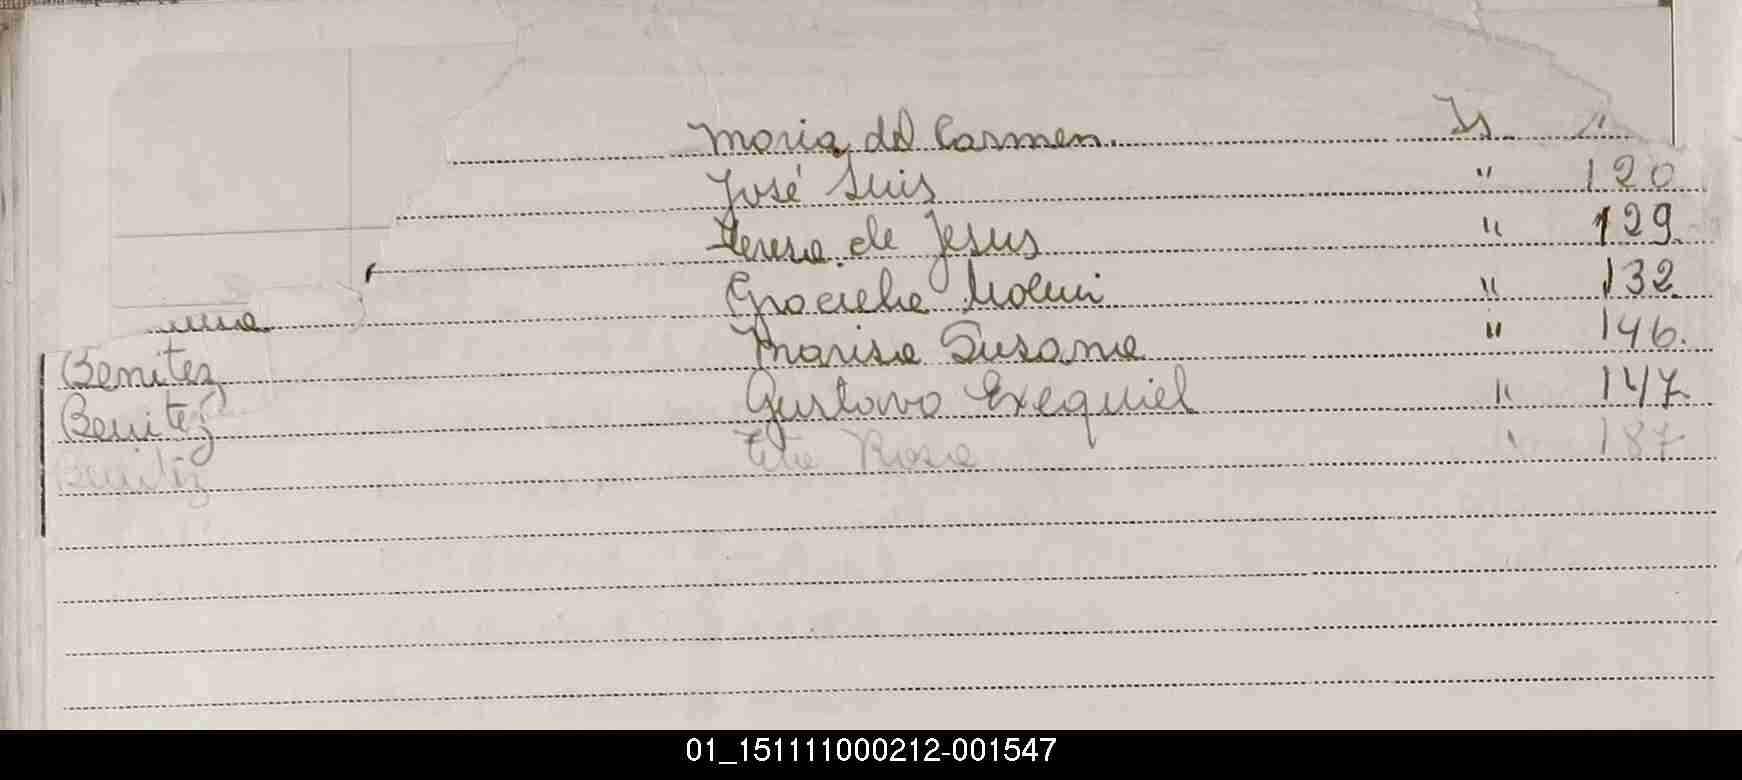 Maria del Carmen. Is "
José Luis " 120
Teresa de Jesus " 129
Graciela Noemi " 132
Benitez Marisa Susana " 146.
Benitez Gustavo Exequiel " 147
Benitez Rosa " 187
01_151111000212-001547